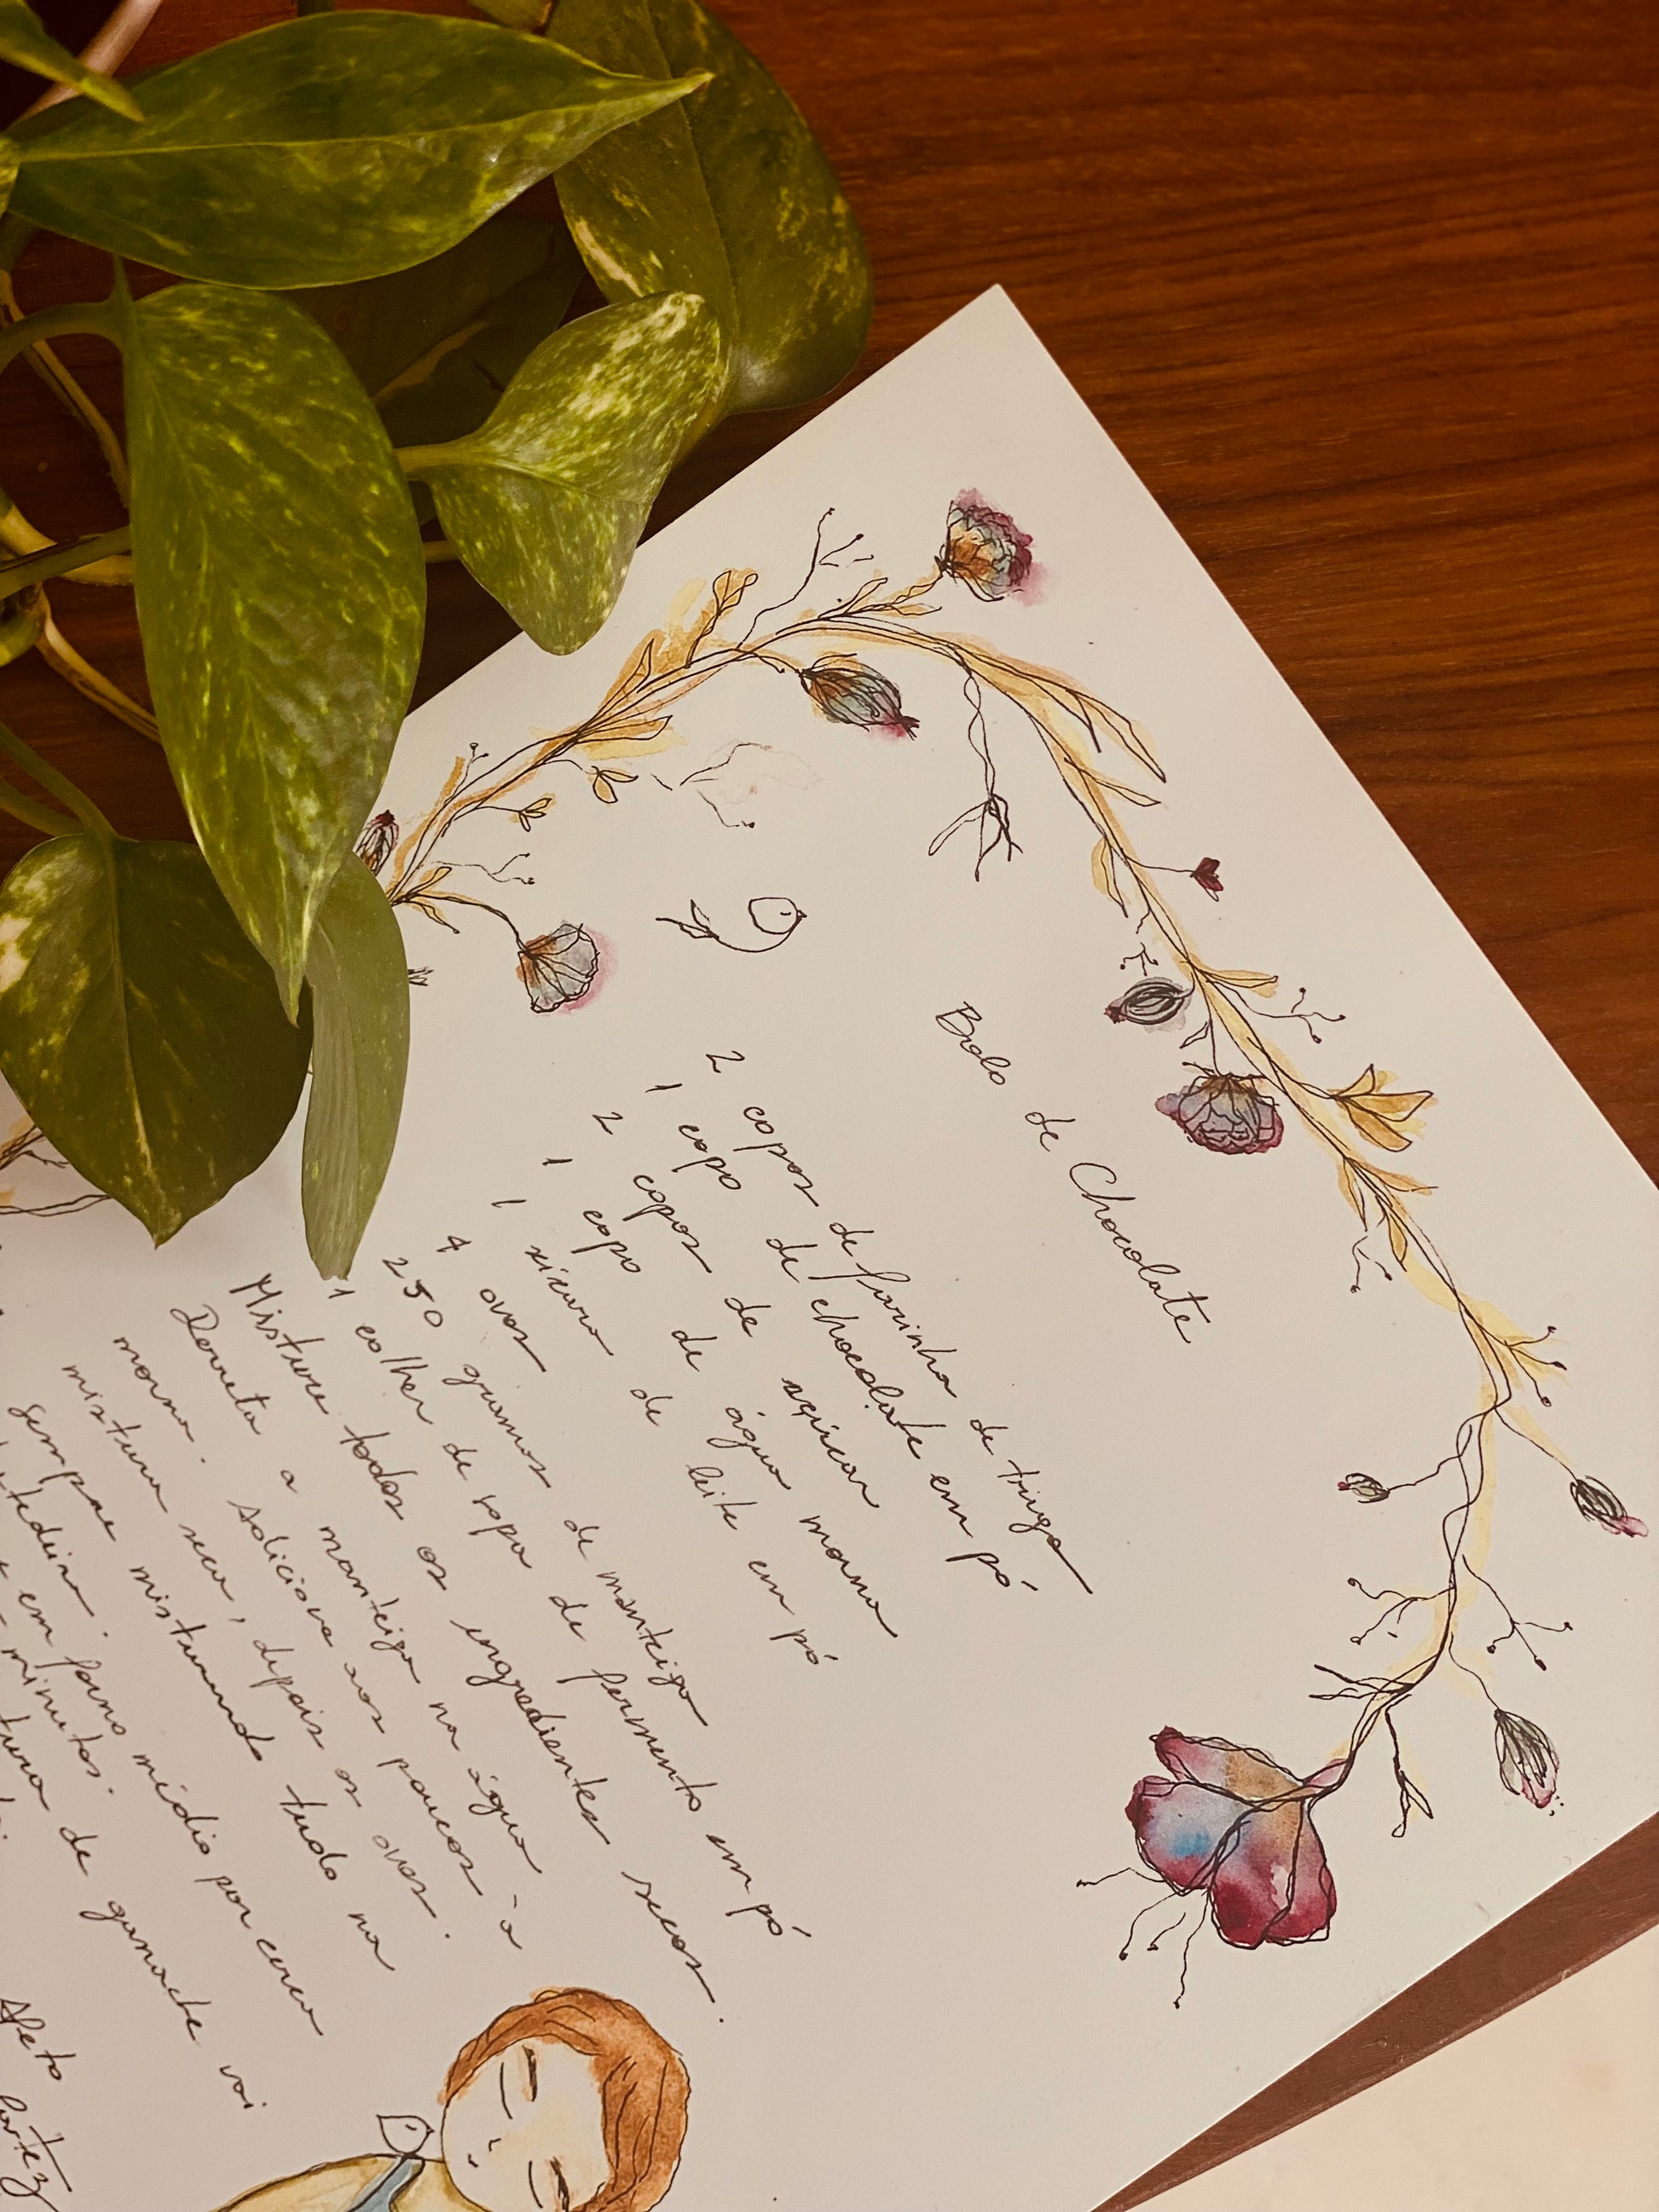 Bolo de Chocolate
2 copos de farinha de trigo
1 copo de chocolate em pó
2 copos de açúcar
1 copo de água morna
1 xícara de leite em pó
4 ovos
250 gramas de manteiga
1 colher de sopa de fermento em pó
Misture todos os ingredientes secos.
Derreta a manteiga na água
morna. Adicione aos poucos à
mistura seca, depois os ovos.
sempre misturando tudo na
em forno médio por cerca
minutos.
de ganache vai
Afeto